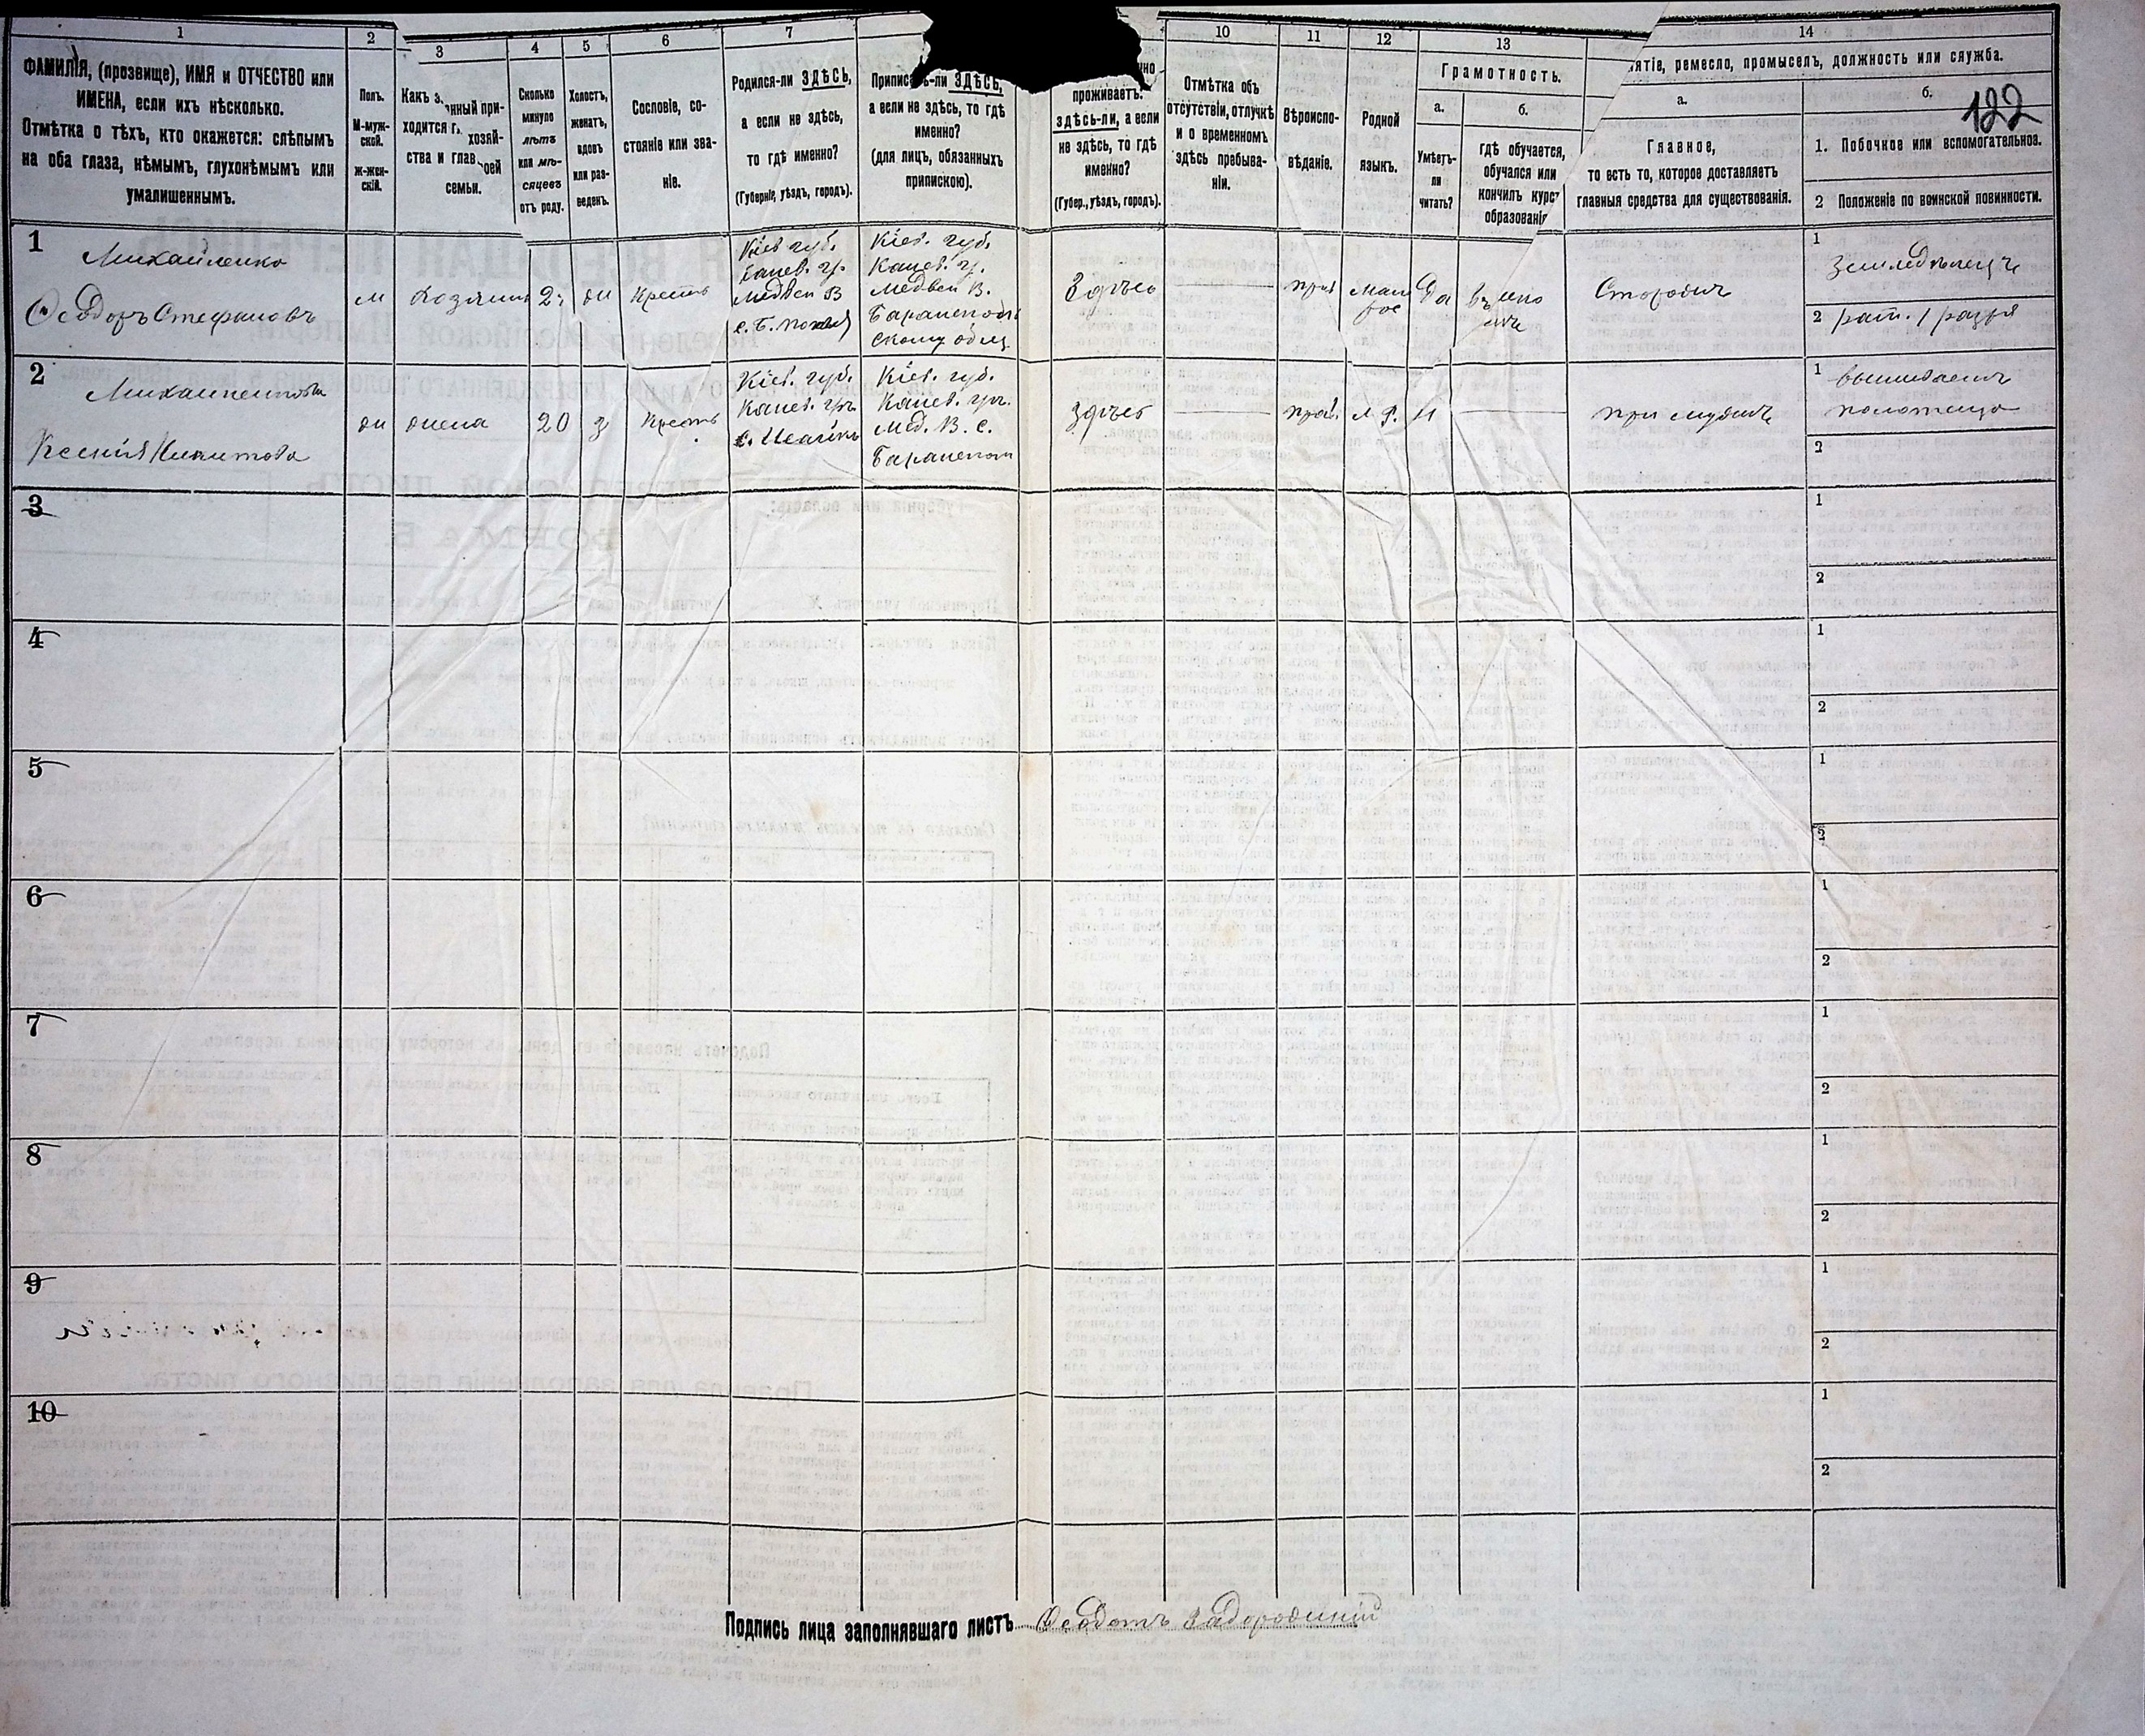 122
1
2
3
4
5
6
7
10
11
12
13
14
ФАМИЛІЯ, (прозвище), ИМЯ и ОТЧЕСТВО или
ИМЕНА, если ихъ нѣсколько.
Отмѣтка о тѣхъ, кто окажется: слѣпымъ
на оба глаза, нѣмымъ, глухонѣмымъ или
умалишеннымъ.
Полъ.
М-муж-
ской.
ж-жен-
скій.
Какъ з
нный при-
ходится г
хозяй-
ства и глав
оей
семьи.
Сколько
минуло
лѣтъ
или мѣ-
сяцевъ
отъ роду.
Холостъ,
женатъ,
вдовъ
или раз-
веденъ.
Сословіе, со-
стояніе или зва-
ніе.
Родился-ли ЗДѢСЬ,
а если не здѣсь,
то гдѣ именно?
(Губернія, уѣздъ, городъ).
Приписанъ-ли ЗДѢСЬ,
а если не здѣсь, то гдѣ
именно?
(для лицъ, обязанныхъ
припискою).
но
проживаетъ:
здѣсь-ли, а если
не здѣсь, то гдѣ
именно?
(Губер., уѣздъ, городъ).
Отмѣтка объ
отсутствіи, отлучкѣ
и о временномъ
здѣсь пребыва-
ніи.
Вѣроиспо-
вѣданіе.
Родной
языкъ.
Грамотность.
а.
б.
Умѣетъ-
ли
читать?
гдѣ обучается,
обучался или
кончилъ курсъ
образованія
ятіе, ремесло, промыселъ, должность или служба.
а.
б.
Главное,
то есть то, которое доставляетъ
главныя средства для существованія.
1. Побочное или вспомогательное.
2 Положеніе по воинской повинности.
1
Михайленко
Ѳеодоръ Стефановъ
м
хозяинъ
2
жи
Крестъ
Кіев губ.
Канев. у.
Медвен В
с. Б.
Кіев. губ.
Канев. у.
Медвен В.
скому общ
Здѣсь
прав
мал
рос
да
Сторожъ
1 земледѣлецъ
2 рат. 1 разря
2
Михайленкова
Ксенія Никитова
жи
жена
20
з
Крестъ
Кіев. губ.
Канев. у.
Кіев. губ.
Канев. у.
Мед. В. с.
здѣсь
прав.
М. Р.
Н
при мужѣ
1 вышиваетъ
полотенца
2
3
1
2
4
1
2
5
1
2
6
1
2
7
1
2
8
1
2
9
1
2
10
1
2
Подпись лица заполнявшаго листъ Ѳеодотъ Задорожній